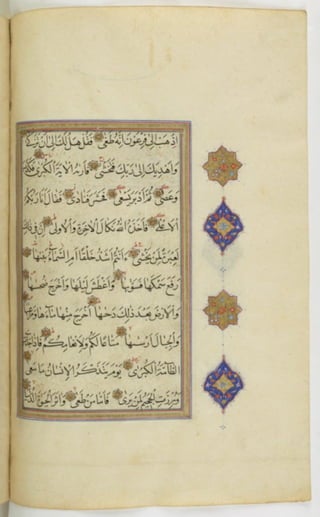 اِذْهَبْ اِلٰى فِرْعَوْنَ اِنَّهُ طَغٰى فَقُلْ هَلْ لَكَ اِلٰى اَنْ تَزَكّٰى
وَاَهْدِيَكَ اِلٰى رَبِّكَ فَتَخْشٰى فَاَرٰيهُ الْاٰيَةَ الْكُبْرٰى فَكَذَّبَ
وَعَصٰى ثُمَّ اَدْبَرَ يَسْعٰى فَحَشَرَ فَنَادٰى فَقَالَ اَنَا رَبُّكُمُ
الْاَعْلٰى فَاَخَذَهُ اللّٰهُ نَكَالَ الْاٰخِرَةِ وَالْاُولٰى اِنَّ فِى ذٰلِكَ
لَعِبْرَةً لِمَنْ يَخْشٰى ءَاَنْتُمْ اَشَدُّ خَلْقًا اَمِ السَّمَاءُ بَنٰيهَا
رَفَعَ سَمْكَهَا فَسَوّٰيهَا وَاَغْطَشَ لَيْلَهَا وَاَخْرَجَ ضُحٰيهَا
وَالْاَرْضَ بَعْدَ ذٰلِكَ دَحٰيهَا اَخْرَجَ مِنْهَا مَاءَهَا وَمَرْعٰيهَا
وَالْجِبَالَ اَرْسٰيهَا مَتَاعًا لَكُمْ وَلِاَنْعَامِكُمْ فَاِذَا جَاءَتِ
الطَّامَّةُ الْكُبْرٰى يَوْمَ يَتَذَكَّرُ الْاِنْسَانُ مَا سَعٰى
وَبُرِّزَتِ الْجَحِيمُ لِمَنْ يَرٰى فَاَمَّا مَنْ طَغٰى وَاٰثَرَ الْحَيٰوةَ الدُّنْيَا